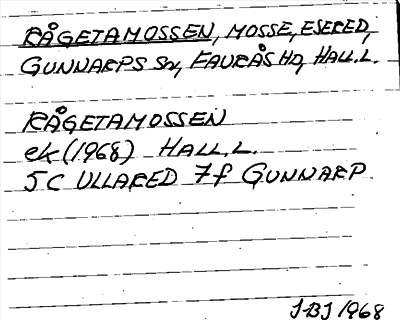 RÅGETAMOSSEN, MOSSE, ESERED,
GUNNARPS SN, FAURÅS HD, HALL.L.
RÅGETAMOSSEN
ek (1968) HALL.L.
5C ULLARED 7f GUNNARP
JBJ 1968